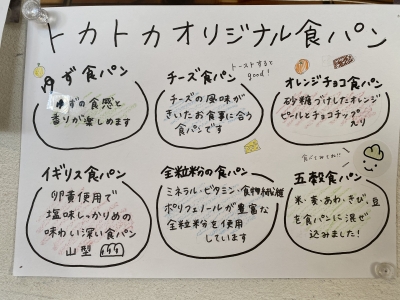 トカトカオリジナル食パン
ゆず食パン
ゆずの食感と
香りが楽しめます
チーズ食パン
トーストすると
good!
チーズの風味が
きいたお食事に合う
食パンです
オレンジチョコ食パン
砂糖づけしたオレンジ
ピールとチョコチップ
入り
イギリス食パン
卵黄使用で
塩味しっかりめの
味わい深い食パン
山型
全粒粉の食パン
ミネラル・ビタミン・食物繊維
ポリフェノールが豊富な
全粒粉を使用
しています
五穀食パン
米・麦・あわ・きび・豆
を食パンに混ぜ
込みました!